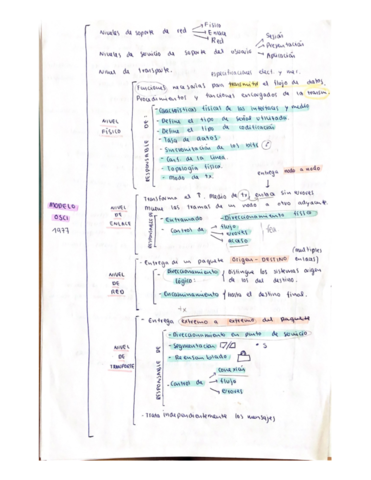 Niveles de soporte de red
Física
Enlace
Red
Niveles de servicio de soporte del usuario
Sesión
Presentación
Aplicación
Nivel de transporte.
especificaciones elect. y mec.
MODELO
OSCI
1977
NIVEL
FÍSICO
Funciones necesarias para transmitir el flujo de datos.
Procedimientos y funciones encargados de la transm.
RESPONSABLE DE:
- Características físicas de las interfaces y medio
- Define el tipo de señal utilizada.
- Define el tipo de codificación
- Tasa de datos.
- Sincronización de los bits
- Conf. de la línea.
- Topología física.
- Modo de tx.
entrega nodo a nodo
NIVEL
DE
ENLACE
Transforma el medio de tx sin errores
Mueve las tramas de un nodo a otro adyacente.
RESPONSABLE
- Entramado
- Direccionamiento físico
- Control de
flujo
errores
acceso
NIVEL
DE
RED
- Entrega de un paquete ORIGEN-DESTINO (múltiples
enlaces)
- Direccionamiento
lógico:
Distingue los sistemas origen
de los del destino.
- Encaminamiento
hasta el destino final.
NIVEL
DE
TRANSPORTE
- Entrega extremo a extremo del paquete
RESPONSABLE DE
- Direccionamiento en punto de servicio.
- Segmentación
- Reensamblado
- Control de
conexión
flujo
errores
- Trata independientemente los mensajes